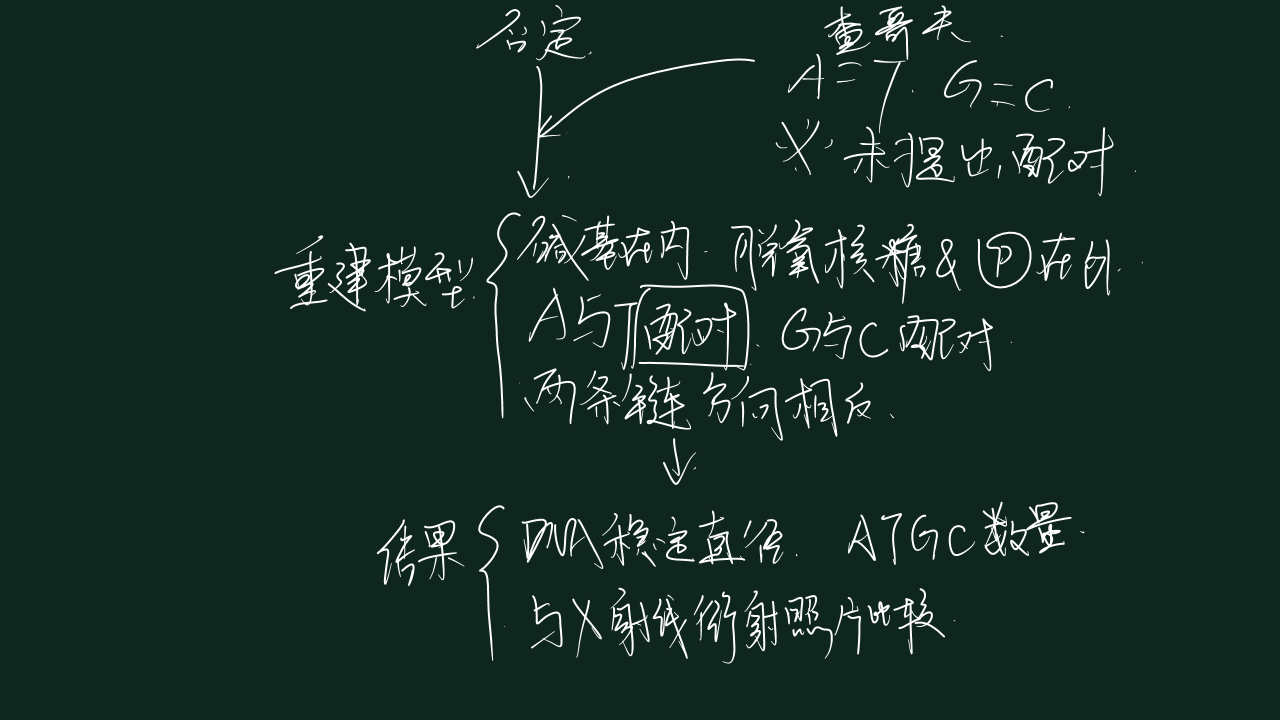 否定.
查哥夫.
A=T. G=C.
※ 未提出配对.
重建模型
碱基在内. 脱氧核糖&Ⓟ在外.
A与T配对. G与C配对.
两条链方向相反.
结果
DNA稳定直径. ATGC数量.
与X射线衍射照片比较.